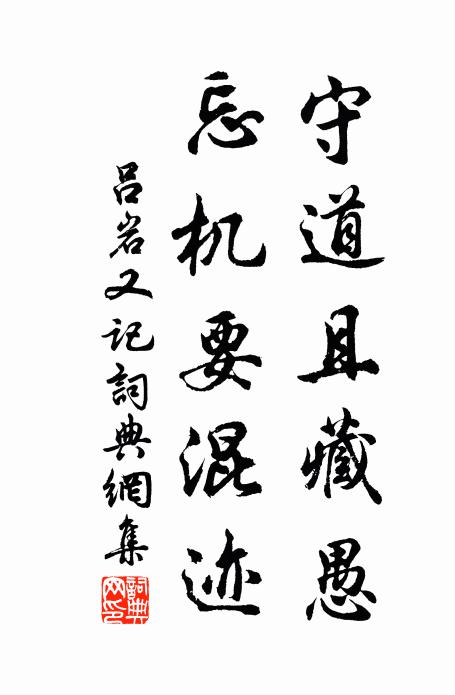 守道且藏愚
忘机要混迹
吕岩又记詞典網集
詞典网印